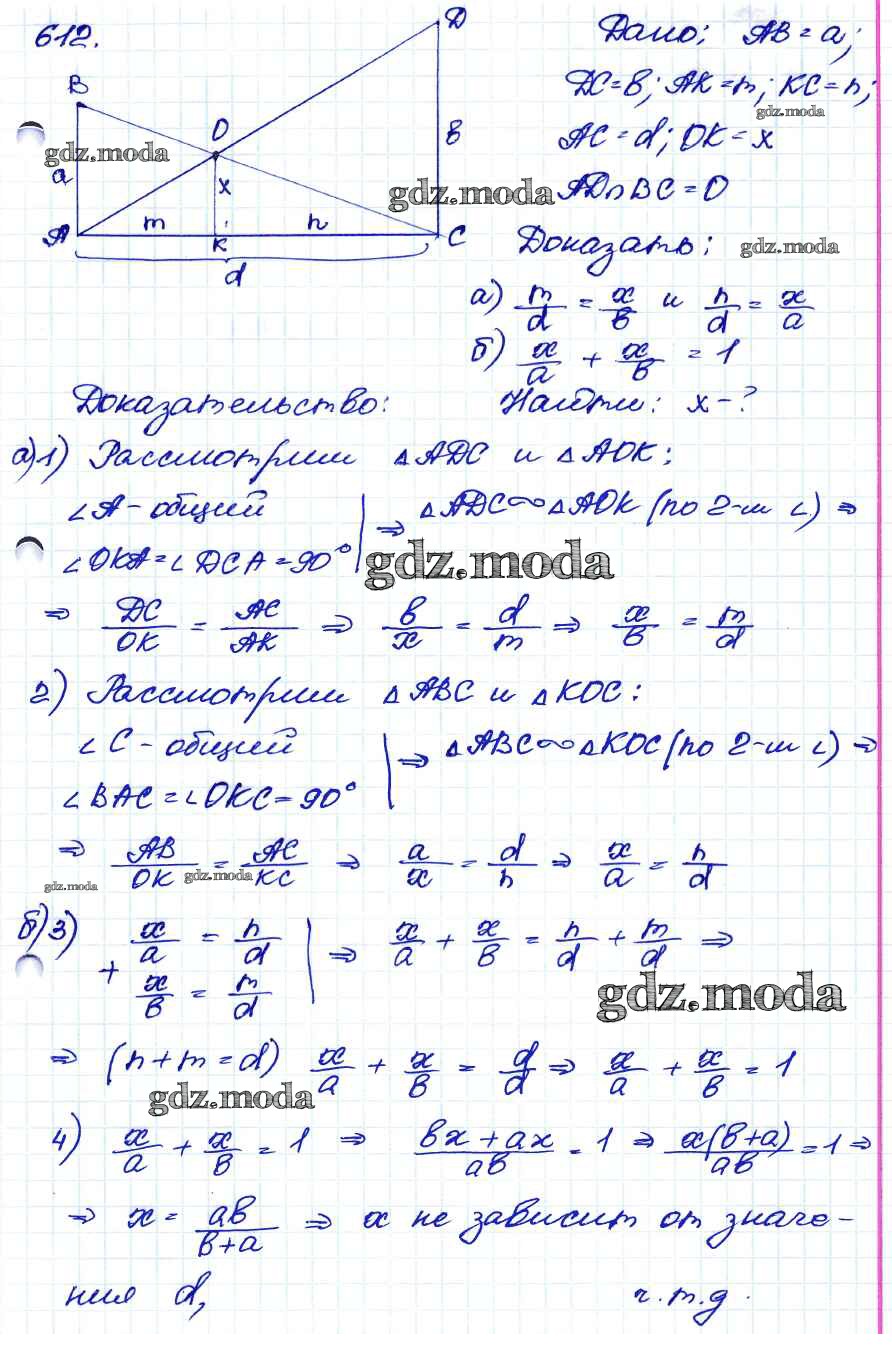 612.
Дано: AB = a;
DC = b; AK = m; KC = n;
gdz.moda
AC = d; OK = x
AD∩BC = O
B D O b a x m n A K C d
gdz.moda
gdz.moda
Доказать:
gdz.moda
а) m/d = x/b и n/d = x/a
б) x/a + x/b = 1
Доказательство: Найти: x - ?
а) 1) Рассмотрим △ADC и △AOK:
∠A - общий
∠OKA = ∠DCA = 90° | ⇒ △ADC ∾ △AOK (по 2-м ∠) ⇒
gdz.moda
⇒ DC/OK = AC/AK ⇒ b/x = d/m ⇒ x/b = m/d
2) Рассмотрим △ABC и △KOC:
∠C - общий
∠BAC = ∠OKC = 90° | ⇒ △ABC ∾ △KOC (по 2-м ∠) ⇒
⇒ AB/OK = AC/KC ⇒ a/x = d/n ⇒ x/a = n/d
gdz.moda gdz.moda
б) 3) x/a = n/d
+ x/b = m/d | ⇒ x/a + x/b = n/d + m/d ⇒
gdz.moda
⇒ (n + m = d) x/a + x/b = d/d ⇒ x/a + x/b = 1
gdz.moda
4) x/a + x/b = 1 ⇒ bx + ax/ab = 1 ⇒ x(b + a)/ab = 1 ⇒
⇒ x = ab/b + a ⇒ x не зависит от значе-
ния d, ч.т.д.